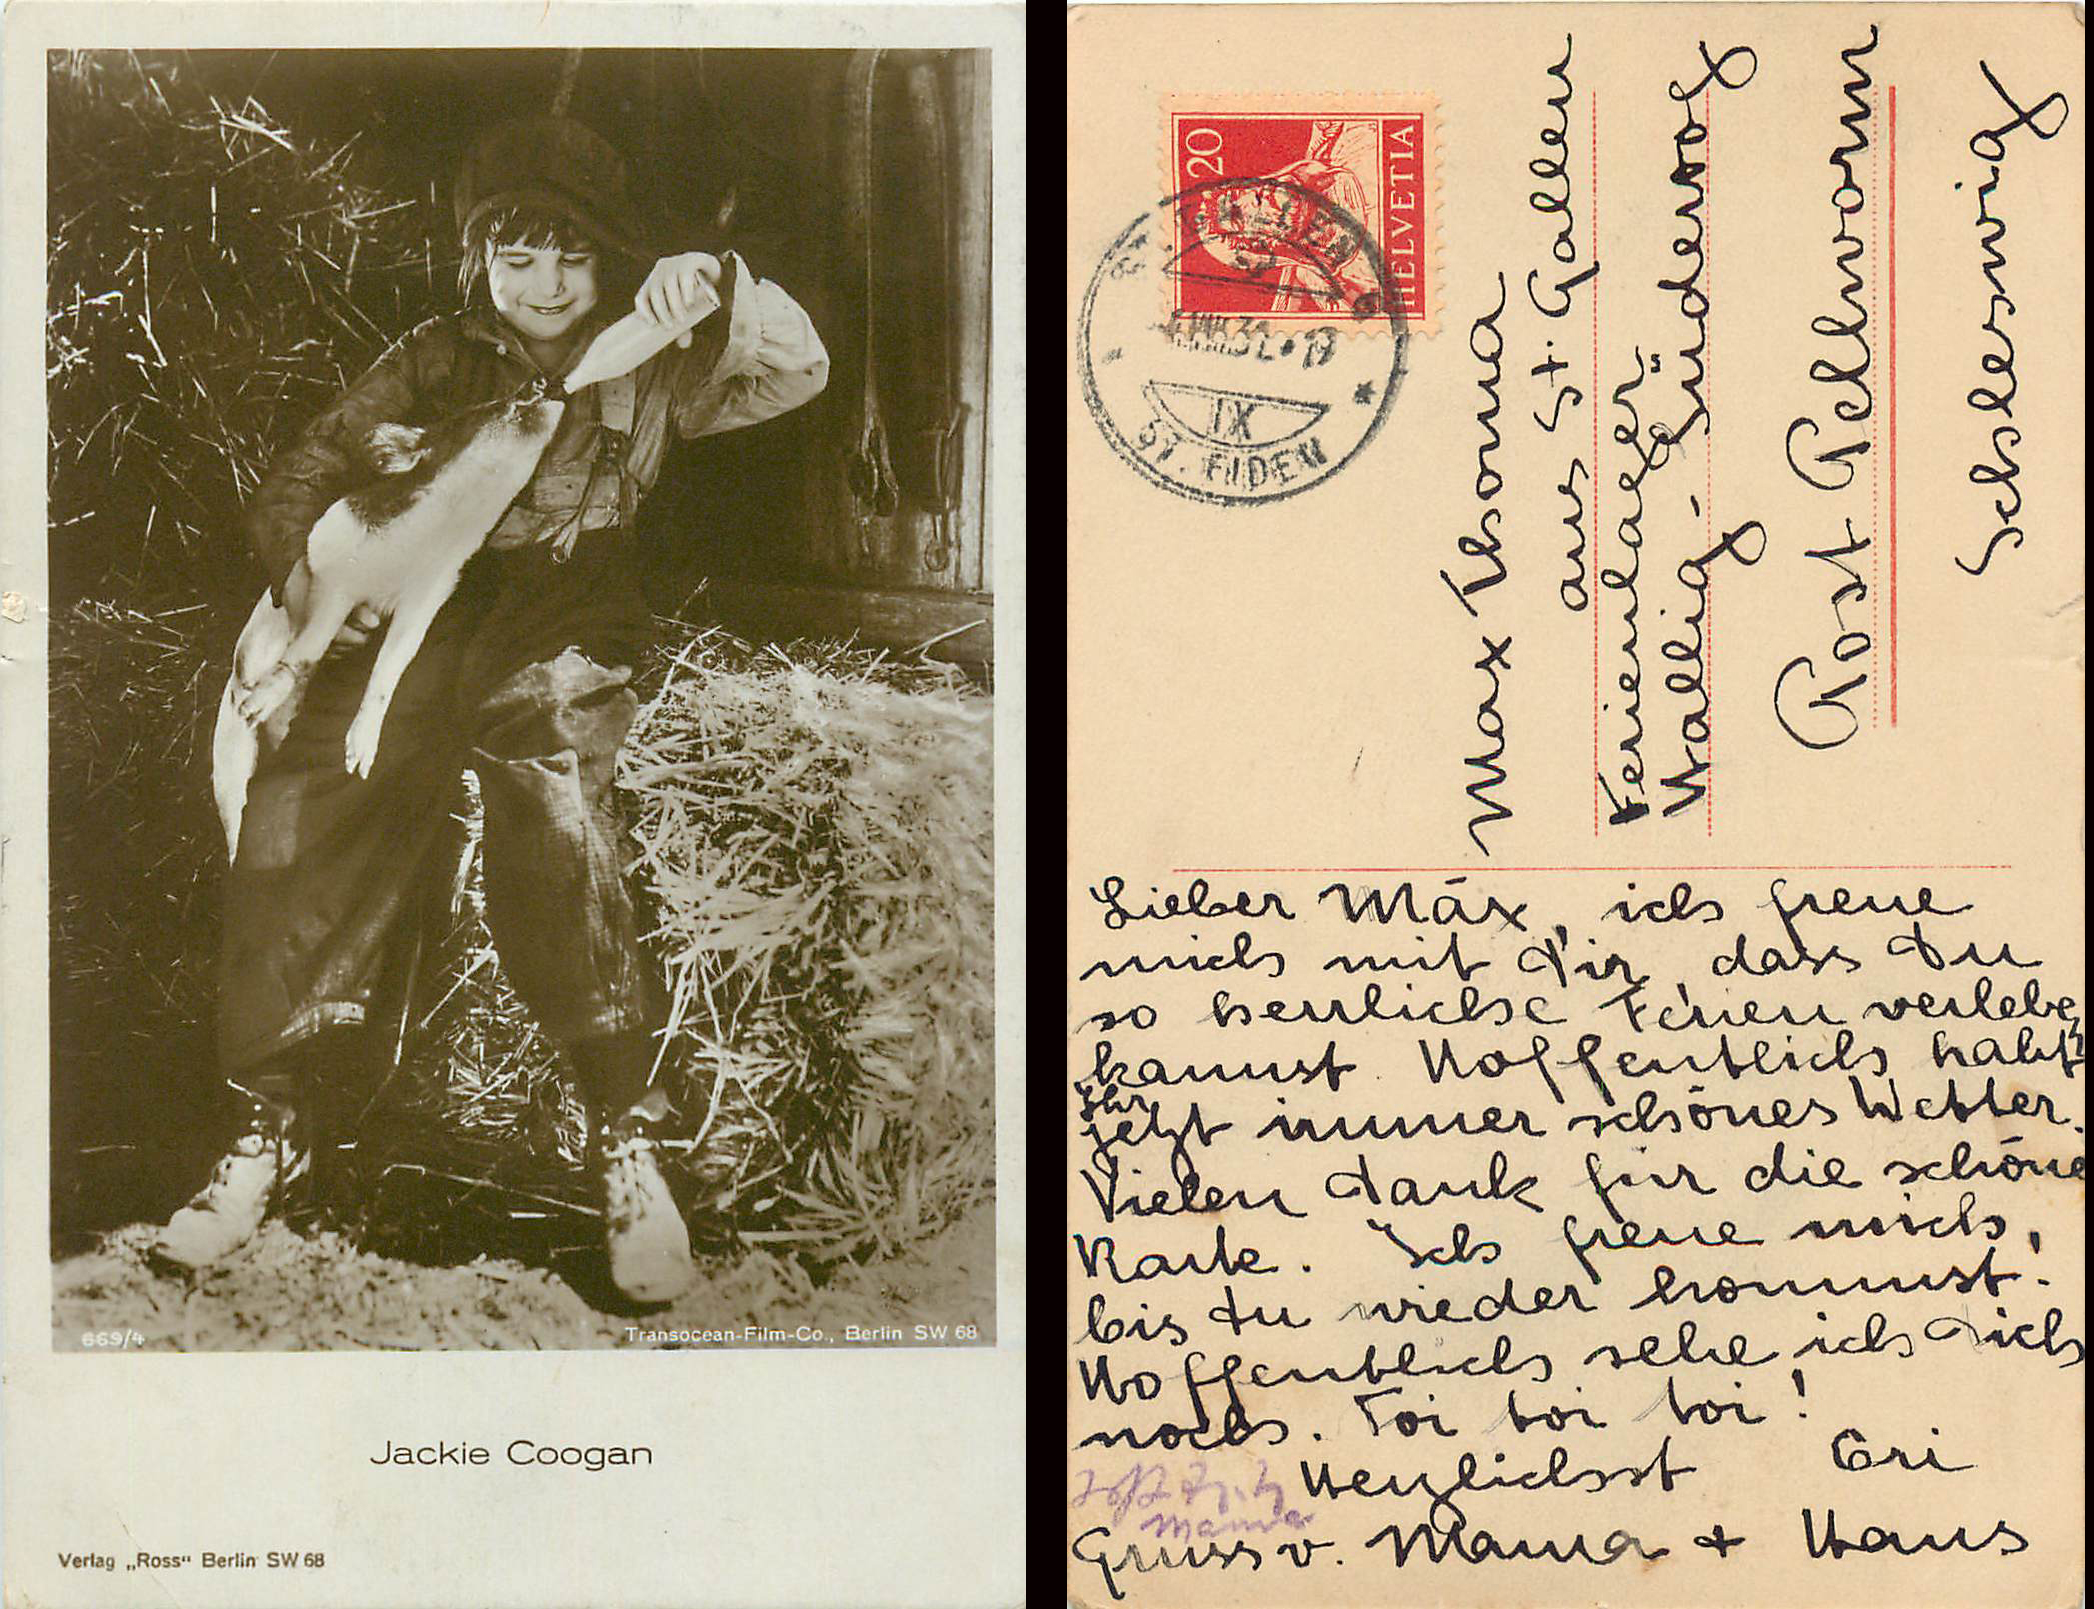 669/4
Transocean-Film-Co., Berlin SW 68
Jackie Coogan
Verlag „Ross“ Berlin SW 68
20
HELVETIA
ST. GALLEN
IX
ST. FIDEN
Max Thoma
aus St. Gallen
Ferienlager
Hallig-Süderoog
Post Pellworm
Schleswig
Lieber Mäx, ich freue
mich mit Dir, dass Du
so herrliche Ferien verleben
kannst. Hoffentlich habt
Ihr
jetzt immer schönes Wetter.
Vielen Dank für die schöne
Karte. Ich freue mich,
bis Du wieder kommst!
Hoffentlich sehe ich Dich
noch. Toi toi toi!
Herzlichst Eri
Mama
Gruss v. Mama + Hans